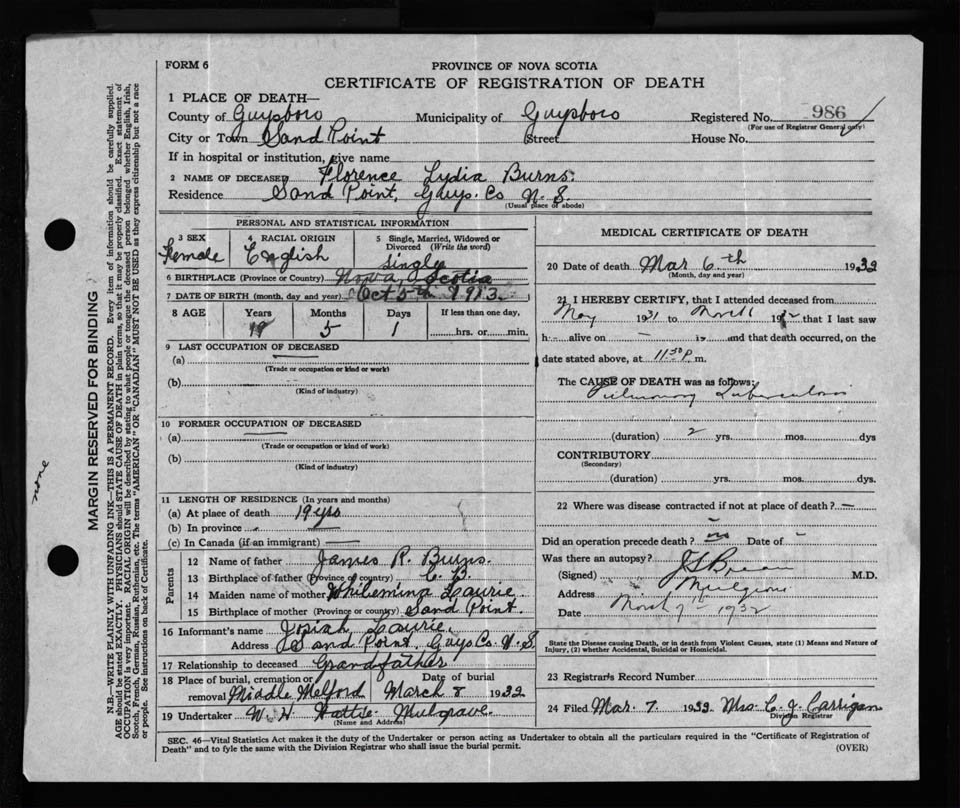 FORM 6
PROVINCE OF NOVA SCOTIA
CERTIFICATE OF REGISTRATION OF DEATH
1 PLACE OF DEATH—
County of Guysboro Municipality of Guysboro Registered No. 986
(For use of Registrar General only)
City or Town Sand Point Street House No.
If in hospital or institution, give name
2 NAME OF DECEASED Florence Lydia Burns.
Residence Sand Point, Guys. Co N. S.
(Usual place of abode)
PERSONAL AND STATISTICAL INFORMATION
3 SEX 4 RACIAL ORIGIN 5 Single, Married, Widowed or Divorced (Write the word)
Female English Single
6 BIRTHPLACE (Province or Country) Nova Scotia
7 DATE OF BIRTH (month, day and year) Oct 5th 1913
8 AGE Years Months Days If less than one day,
19 5 1 hrs. or min.
9 LAST OCCUPATION OF DECEASED
(a)
(Trade or occupation or kind or work)
(b)
(Kind of industry)
10 FORMER OCCUPATION OF DECEASED
(a)
(Trade or occupation or kind of work)
(b)
(Kind of industry)
11 LENGTH OF RESIDENCE (In years and months)
(a) At place of death 19 yrs
(b) In province
(c) In Canada (if an immigrant)
Parents
12 Name of father James R. Burns.
13 Birthplace of father (Province or country) C. B.
14 Maiden name of mother Whilemina Laurie
15 Birthplace of mother (Province or country) Sand Point.
16 Informant's name Josiah Laurie.
Address Sand Point. Guys Co. N. S
17 Relationship to deceased Grandfather
18 Place of burial, cremation or removal Middle Melford Date of burial March 8 1932
19 Undertaker W. H. Hattie Mulgrave.
(Name and Address)
MEDICAL CERTIFICATE OF DEATH
20 Date of death Mar 6th 1932
(Month, day and year)
21 I HEREBY CERTIFY, that I attended deceased from
May 1931 to 1932 that I last saw
h alive on is and that death occurred, on the
date stated above, at 11.30 P. m.
The CAUSE OF DEATH was as follows:
Pulmonary Tuberculosis
(duration) 2 yrs. mos. dys
CONTRIBUTORY
(Secondary)
(duration) yrs. mos. dys.
22 Where was disease contracted if not at place of death? —
Did an operation precede death? no Date of
Was there an autopsy?
(Signed) M.D.
Address Mulgrave
Date March 7th 1932
State the Disease causing Death, or in death from Violent Causes, state (1) Means and Nature of
Injury, (2) whether Accidental, Suicidal or Homicidal.
23 Registrar's Record Number
24 Filed Mar. 7 1932 Mrs. C. J. Carrigan
Division Registrar
SEC. 46—Vital Statistics Act makes it the duty of the Undertaker or person acting as Undertaker to obtain all the particulars required in the "Certificate of Registration of
Death" and to fyle the same with the Division Registrar who shall issue the burial permit.
(OVER)
MARGIN RESERVED FOR BINDING
N.B.—WRITE PLAINLY WITH UNFADING INK—THIS IS A PERMANENT RECORD. Every item of information should be carefully supplied.
AGE should be stated EXACTLY. PHYSICIANS should STATE CAUSE OF DEATH in plain terms, so that it may be properly classified. Exact statement of
OCCUPATION is very important. RACIAL ORIGIN will be described by stating to what people or tongue the deceased person belonged whether English, Irish,
Scotch, French, German, Russian, Ruthenian, etc. The terms "AMERICAN" OR "CANADIAN" MUST NOT BE USED as they express citizenship but not a race
or people. See instructions on back of Certificate.
none